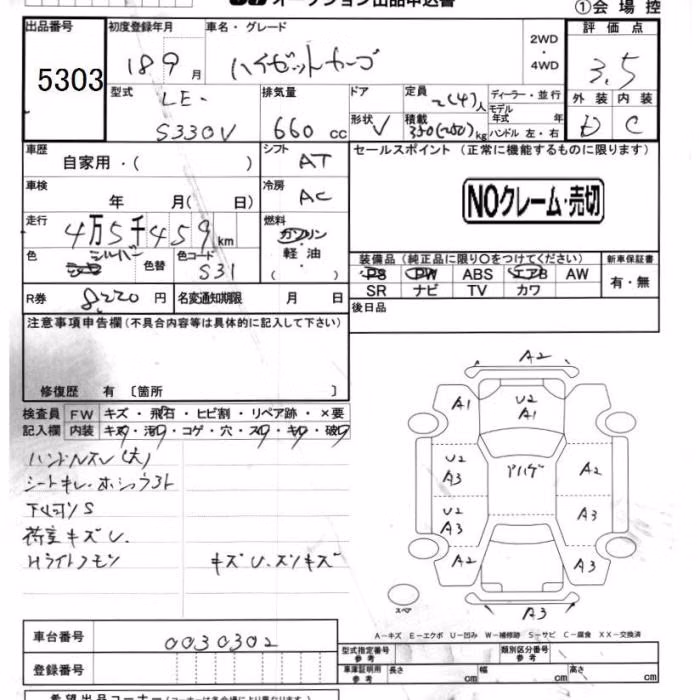 オークション出品申込書
①会場控
出品番号
5303
初度登録年月
18 9 月
車名・グレード
ハイゼットカーゴ
2WD
・
4WD
評価点
3.5
外装 内装
D C
型式
LE-
S330V
排気量
660 cc
ドア
形状
V
定員
2(4)人
積載
350(250)kg
ディーラー・並行
モデル
年式 年
ハンドル 左・右
車歴
自家用・( )
シフト
AT
セールスポイント(正常に機能するものに限ります)
NOクレーム・売切
車検
年 月( 日)
冷房
AC
走行
4万5千459km
燃料
ガソリン
軽油
( )
色
シルバー
色替
色コード
S31
装備品(純正品に限り○をつけてください)
新車保証書
PS PW ABS エアB AW
SR ナビ TV カワ
有・無
R券
8,220 円
名変通知期限 月 日
後日品
注意事項申告欄(不具合内容等は具体的に記入して下さい)
修復歴 有〔箇所 〕
検査員 FW キズ・飛石・ヒビ割・リペア跡・×要
記入欄 内装 キズ・汚・コゲ・穴・スレ・キレ・破
ハンドルスレ(大)
シートキレ・
下
荷室キズU
Hライトクモリ
キズU
A2
A1
U2
A1
U2
A3
アハゲ
A2
U2
A3
A3
A2
A3
A3
スペア
A-キズ E-エクボ U-凹み W-補修跡 S-サビ C-腐食 XX-交換済
車台番号
0030302
登録番号
型式指定番号
参考
類別区分番号
参考
車庫証明用
参考
長さ cm
幅 cm
高さ cm
希望出品コーナー